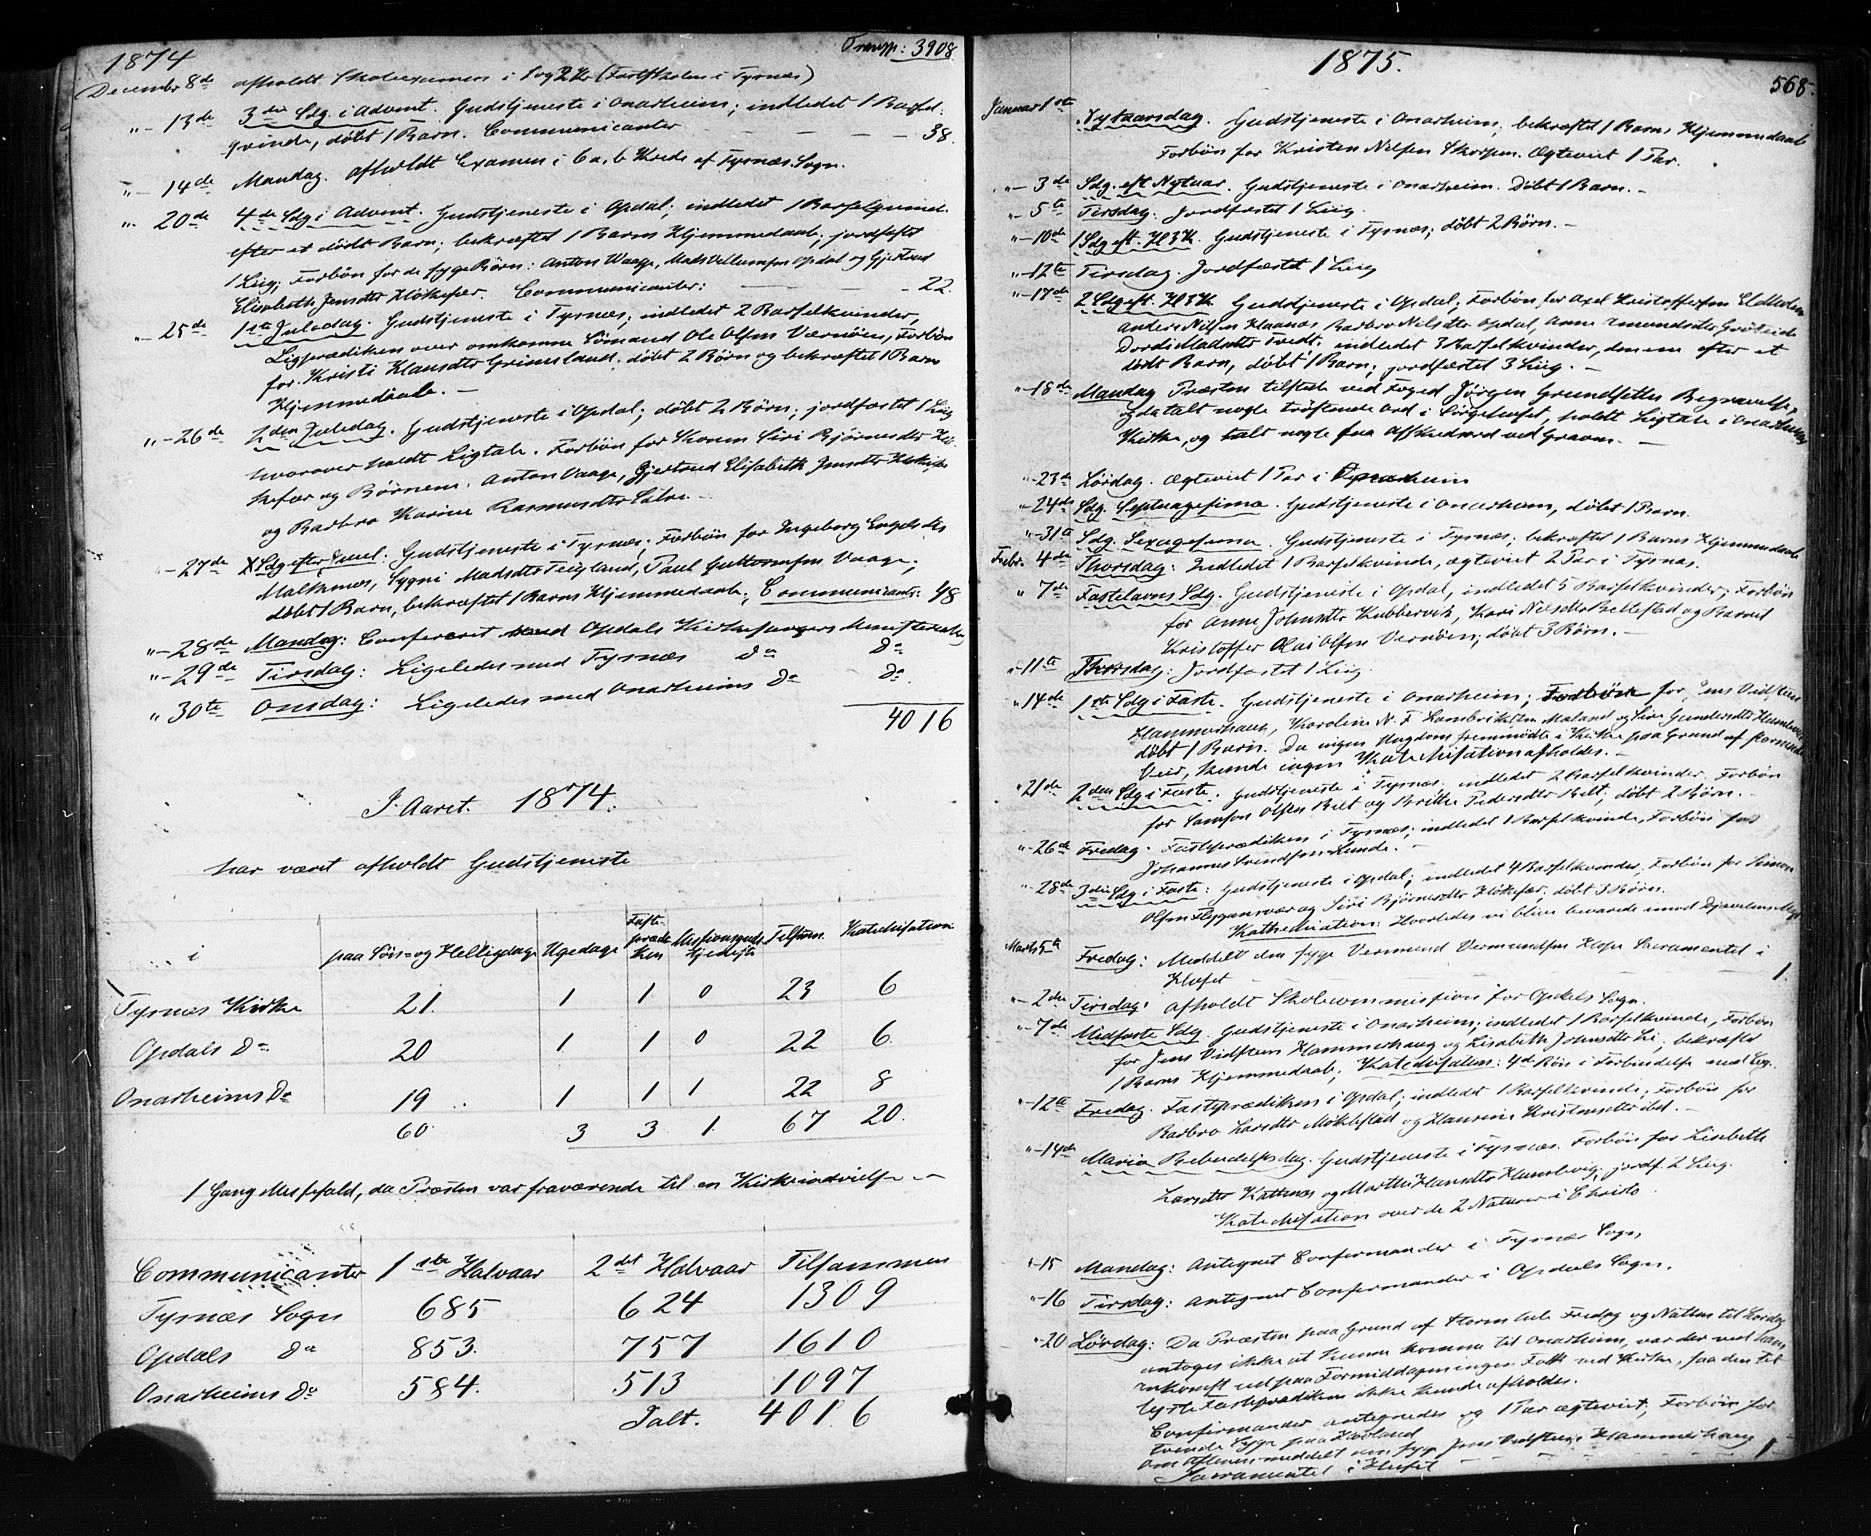 1874
Transp: 3908
Decembr 8de afholdt Skoleexamen i Sog (Fastskolen i Tysnæs)
"- 13de 3die Sdg. i Advent. Gudstjeneste i Onarheim; indledet 1 Barsel-
qvinde, døbt 1 Barn. Communicanter — — — 38.
"- 14de Mandag. afholdt Examen i 6 a, b Kreds af Tysnæs Sogn.
"- 20de 4de Sdg i Advent. Gudstjeneste i Opdal; indledet 1 Barselqvind.
efter et dødt Barn; bekræftet 1 Barns Hjemmedaab; jordfæstet
1 Liig; Forbøn for de syge Børn: Anton Waage, Mads Opdal og Gjertrud
Elisabeth Jensdtr Høkefær. Communicanter: — — 22.
"- 25de 1ste Juledag. Gudstjeneste i Tysnæs; indledet 2 Barselkvinder,
Ligprædiken over omkomne Sømand Ole Olsen Vernøen, Forbøn
for Kristi Hansdtr Grimsland, døbt 2 Børn og bekræftet 1 Barn
Hjemmedaab. —
"- 26de 2den Juledag. Gudstjeneste i Opdal; døbt 2 Børn; jordfæstet 1 Liig
hvorover holdt Ligtale. Forbøn for Konen Siri Bjørnesdtr
kefær og Børnene: Anton Vaage, Gjertrud Elisabeth Jensdtr
og Barbro Karine Rasmusdtr
"- 27de Sdg efter Juul. Gudstjeneste i Tysnæs; Forbøn for Ingeborg
Malkenes, Sygni Madsdtr Teigland, Paul Guttormsen Vaage;
døbt 1 Barn, bekræftet 1 Barns Hjemmedaab. Communicantr: 48
"- 28de Mandag: Confereret med Opdals Kirkesangers
"- 29de Tirsdag: Ligeledes med Tysnæs do do
" 30te Onsdag: Ligeledes med Onarheims do do.
4016
I Aaret 1874.
har været afholdt Gudstjeneste
i paa Søn- og Helligdage Ugedage Faste prædi ken Missionsguds tjeneste Tilsam. Katechisation
Tysnæs Kirke 21. 1 1 0 23 6
Opdals do 20 1 1 0 22 6
Onarheims do 19 1 1 1 22 8
60 3 3 1 67 20.
1 Gang Messefald, da Præsten var fraværende til en Kirkeindvielse —
Communicanter 1ste Halvaar 2det Halvaar Tilsammen
Tysnæs Sogn 685 624 1309
Opdals do 853. 757 1610
Onarheims do 584. 513 1097
Ialt. 4016
1875.
568.
Januar 1ste Nytaarsdag. Gudstjeneste i Onarheim; bekræftet 1 Barns Hjemmedaab
Forbøn for Kristen Nilsen Skorpen. Ægteviet 1 Par.
"- 3de Sdg. eft Nytaar. Gudstjeneste i Onarheim. Døbt 1 Barn. —
"- 5te Tirsdag: Jordfæstet 1 Liig.
"- 10de 1 Sdg eft. H3K. Gudstjeneste i Tysnæs; døbt 2 Børn. —
"- 12te Tirsdag. Jordfæstet 1 Liig
"- 17de 2 Sdg eft. H3K. Gudstjeneste i Opdal; Forbøn for Axel Kristoffersen
Anders Nilsen Haanæs, Barbro Nilsdtr Opdal, Anne Amundsdtr
Dordi Madsdtr Tvedt; indledet 3 Barselkvinder, den ene efter et
dødt Barn, døbt 1 Barn; jordfæstet 3 Liig. —
"- 18de Mandag Præsten tilstede ved Foged Jørgen Begravelse,
og da talt nogle trøstende ord i Sørgehuset, holdt Ligtale i Onarheims
Kirke, og talt nogle faa Afskedsord ved Graven. —
"- 23de Lørdag. Ægteviet 1 Par i Onarheim
"- 24de Sdg. Septuagesima. Gudstjeneste i Onarheim, døbt 1 Barn.
"- 31te Sdg. Sexagesima. Gudstjeneste i Tysnæs; bekræftet 1 Barns Hjemmedaab
Febr. 4de Thorsdag: Indledet 1 Barselkvinde, ægteviet 2 Par i Tysnæs.
" 7de Fastelavns Sdg. Gudstjeneste i Opdal, indledet 5 Barselkvinder; Forbøn
for Anne Johnsdtr Kubbervik, Kari Nilsdtr Beltestad og Barnet
Kristoffer Olai Olsen Vernøen; døbt 3 Børn. —
"- 11te Thorsdag: Jordfæstet 1 Liig.
"- 14de 1ste Sdg i Faste. Gudstjeneste i Onarheim; Forbøn for Jens Vidsteen
Hammerhaug, Karoline N. F. Lambrikstun Maland og Siri Gundersdtr
døbt 1 Barn. Da ingen Ungdom fremmødte i Kirke paa Grund af
Veir, kunde ingen Katechisation afholdes. —
"- 21de 2den Sdg i Faste: Gudstjeneste i Tysnæs, indledet 2 Barselkvinder, Forbøn
for Samson Olsen Belt og Brithe Pedersdtr Belt; døbt 2 Børn. —
"- 26de Fredag. Fasteprædiken i Tysnæs; indledet 1 Barselkvinde, Forbøn for
Johannes Svendsen Lunde. —
"- 28de 3die Sdg i Faste: Gudstjeneste i Opdal; indledet 4 Barselkvinder, Forbøn for Simon
Olsen Flygansvær og Siri Bjørnesdtr Høkefær; døbt 3 Børn.
Kathechisation: Hvorledes vi blive bevarede imod Djævelens Magt
Marts 5te Fredag: Meddelt den syge Vermund Vermundsen Hope Sacramentet i
Huset — — — 1.
"- 2den Tirsdag: afholdt Skolecommission for Opdals Sogn.
"- 7de Midfaste Sdg. Gudstjeneste i Onarheim; indledet 1 Barselkvinde, Forbøn
for Jens Vidsteen Hammerhaug og Lisabeth Johnsdtr Li; bekræftet
1 Barns Hjemmedaab; Katechisation: 4de Bøn i Forbindelse med
"- 12te Fredag. Fasteprædiken i Opdal; indledet 1 Barselkvinde; Forbøn for
Barbro Larsdtr Møklestad og Hansine Kristensdtr ibd. —
"- 14de Maria Bebudelsesdag. Gudstjeneste i Tysnæs. Forbøn for Lisbeth
Larsdtr Kattenes og Marthe Hansdtr Humlevig; jordf. 2 Liig.
Katechisation over de 2 Naturer i Christo.
"- 15 Mandag: Antegnet Confirmander i Tysnæs Sogn,
"- 16 Tirsdag: Antegnet Confirmander i Opdals Sogn.
"- 20 Lørdag: Da Præsten paa Grund af Storm hele Fredag og Natten til Lørdag
antoges ikke at kunne komme til Onarheim, var der ved hans
Ankomst ud paa Formiddagen ingen Folk ved Kirke, saa den til
lyste Fasteprædiken ikke kunde afholdes.
Confirmander antegnedes og 1 Par ægteviet; Forbøn for
tvende Syge paa
Om Aftenen meddelt den syge Jens Vidsteen Hammerhaug
Sacramentet i Huset — — — 1